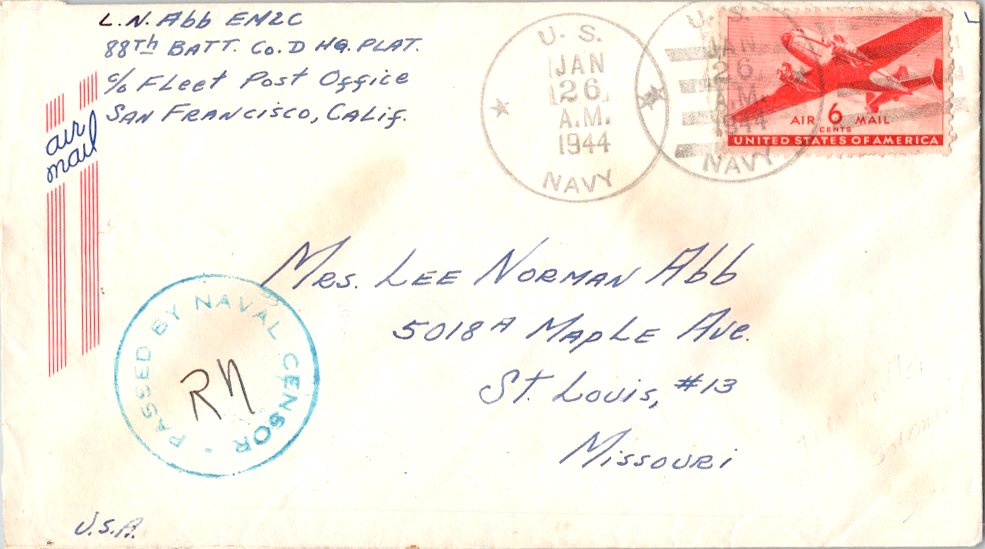 L.N. Abb EN2C
88Th BATT. Co. D HQ. PLAT.
c/o FLeet Post Office
SAN FRANCISCO, CALif.
air
mail
U. S.
JAN
26
A.M.
1944
NAVY
U. S.
JAN
26
A.M.
1944
NAVY
AIR 6 MAIL
CENTS
UNITED STATES OF AMERICA
MRS. LEE NORMAN Abb
5018A MAPLE AVE.
ST. LOUIS, #13
MISSOURI
PASSED BY NAVAL CENSOR
RN
U.S.A.